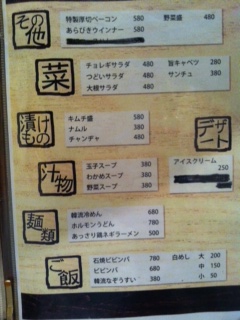 その他
特製厚切ベーコン 580 野菜盛 480
あらびきウインナー 580
菜
チョレギサラダ 480 旨キャベツ 280
つどいサラダ 480 サンチュ 380
大根サラダ 480
漬けもの
キムチ盛 580
ナムル 380
チャンヂャ 480
デザート
アイスクリーム
250
汁物
玉子スープ 380
わかめスープ 380
野菜スープ 380
麺類
韓流冷めん 680
ホルモンうどん 780
あっさり鶏ネギラーメン 500
ご飯
石焼ビビンバ 780 白めし 大 200
ビビンバ 680 中 150
韓流なぞうすい 380 小 50